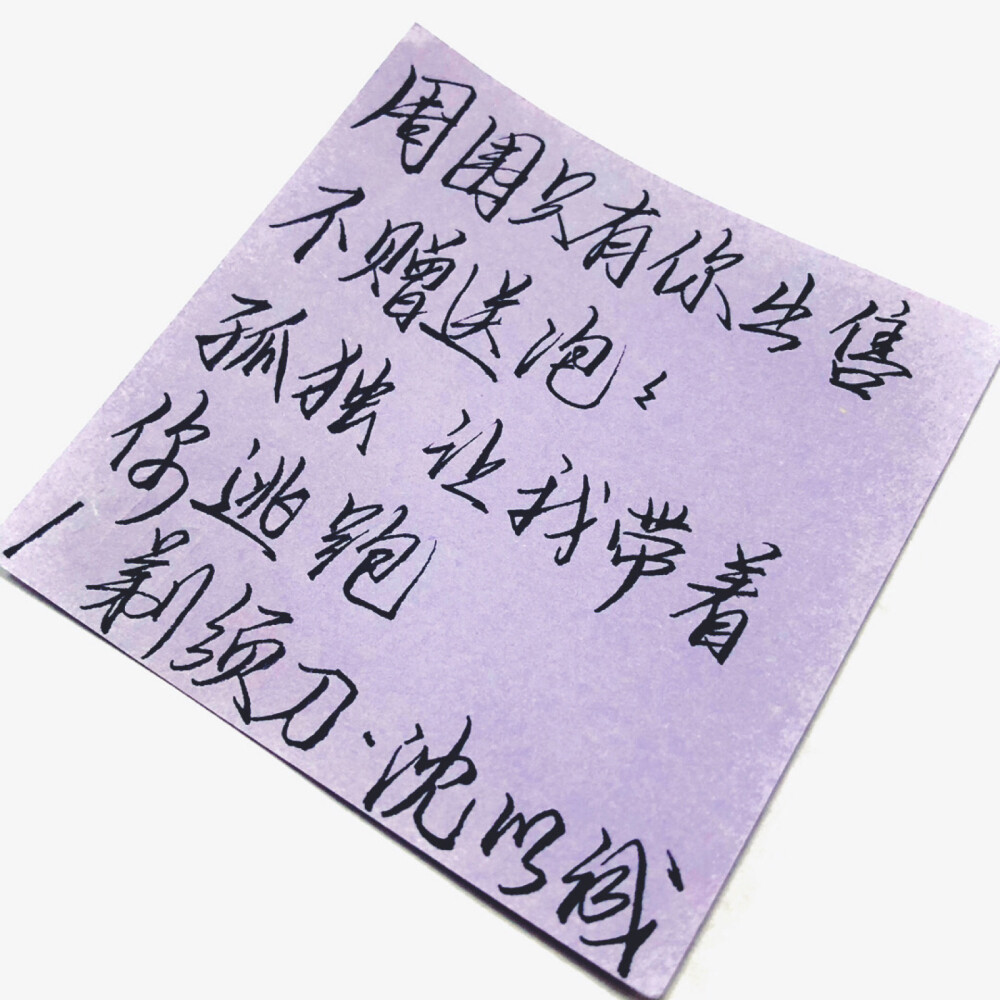 周围只有你出售
不赠送泡泡
孤独 让我带着
你逃跑
/剃须刀·沈以诚